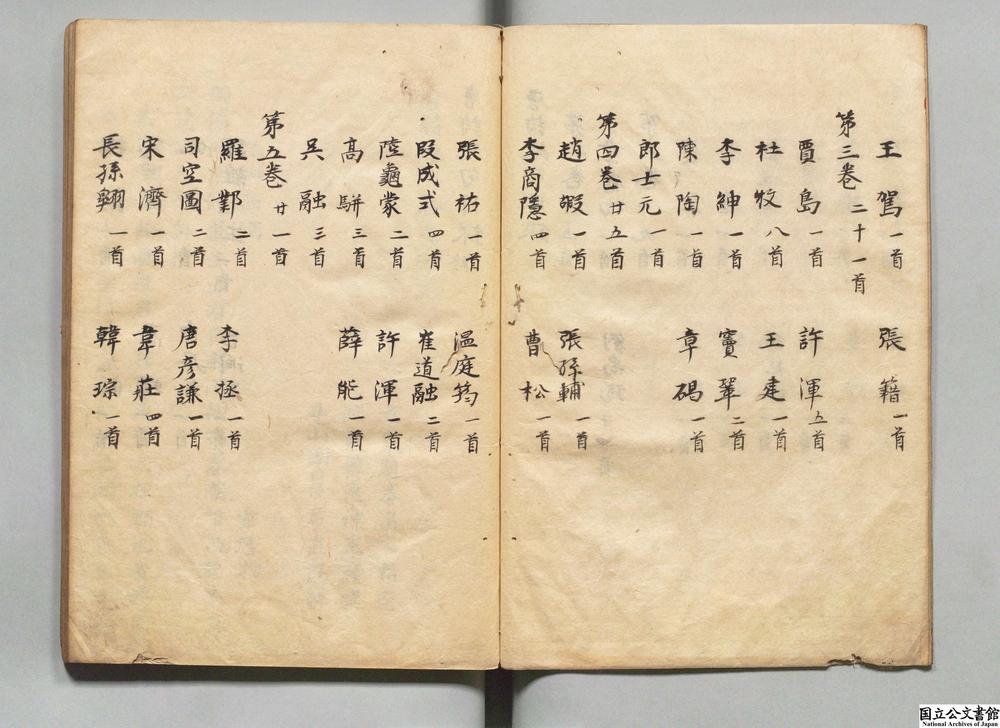 王駕一首 張籍一首
第三巻 二十一首
賈島一首 許渾五首
杜牧八首 王建一首
李紳一首 竇鞏二首
陳陶一首 章碣一首
郎士元一首
第四巻 廿五首
趙嘏一首 張孫輔一首
李商隱四首 曹松一首
張祐一首 温庭筠一首
段成式四首 崔道融二首
陸龜蒙二首 許渾一首
高駢三首 薛能一首
呉融三首
第五巻 廿一首
羅鄴二首 李拯一首
司空圖二首 唐彦謙一首
宋濟一首 韋莊四首
長孫翱一首 韓琮一首
国立公文書館
National Archives of Japan